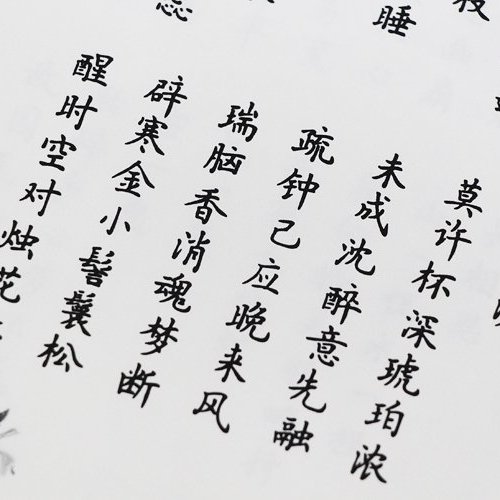 睡
莫许杯深琥珀浓
未成沈醉意先融
疏钟已应晚来风
瑞脑香消魂梦断
辟寒金小髻鬟松
醒时空对烛花